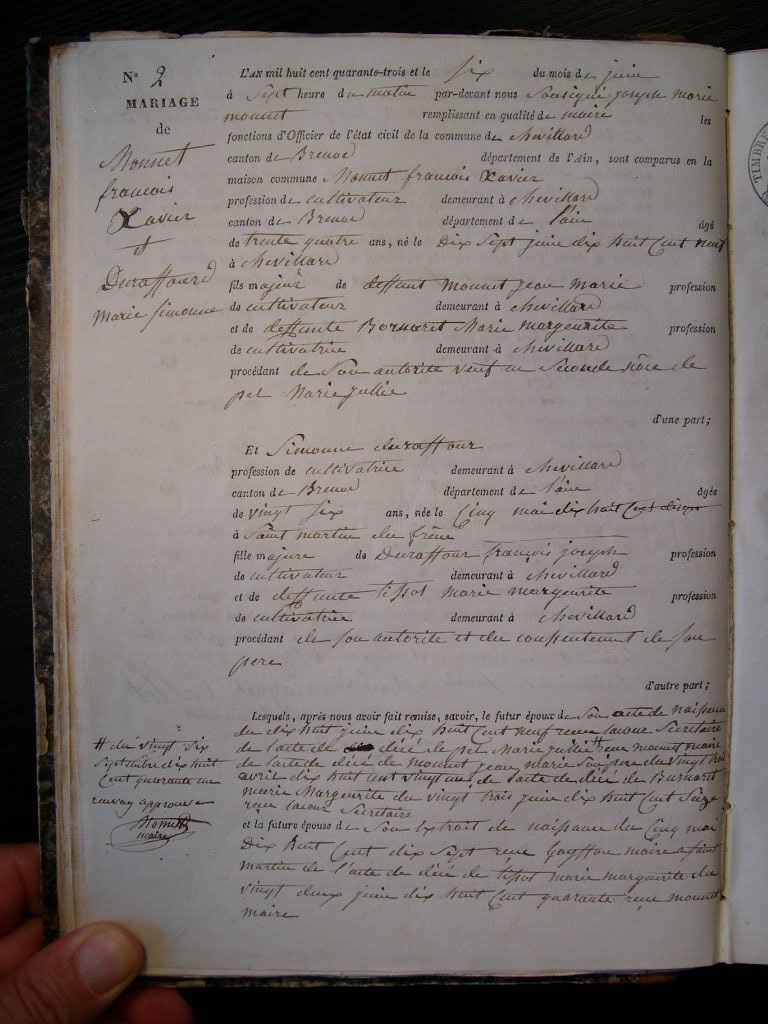 N° 2
MARIAGE
de
Monnet
francois
Xavier
et
Duraffourd
Marie simonne
L'AN mil huit cent quarante-trois et le six du mois de juin
à Sept heure du matin par-devant nous Sousigné joseph marie
monnet remplissant en qualité de maire les
fonctions d'Officier de l'état civil de la commune de chevillard
canton de Brenod département de l'Ain, sont comparus en la
maison commune Monnet francois Xavier
profession de cultivateur demeurant à chevillard
canton de Brenod département de l'ain âgé
de trente quatre ans, né le Dix Sept juin dix huit Cent neuf
à chevillard
fils majeur de deffunt monnet jean marie profession
de cultivateur demeurant à chevillard
et de deffunte Bornaret Marie margeurite profession
de cultivatrice demeurant à chevillard
procédant de Son autorite veuf en Seconde nôce de
pet Marie jullie
d'une part;
Et Simonne duraffour
profession de cultivatrice demeurant à chevillard
canton de Brenod département de l'ain âgée
de vingt Six ans, née le Cinq mai dix huit Cent disept
à Saint martin du frêne
fille majure de Duraffour françois joseph profession
de cultivateur demeurant à chevillard
et de deffunte tissot marie margeurite profession
de cultivatrice demeurant à chevillard
procédant de son autorite et du consentement de son
pere
d'autre part;
Lesquels, après nous avoir fait remise, savoir, le futur époux de Son acte de naissance
du dix huit juin dix huit Cent neuf Secretaire
de l'acte de décé de pet Marie jullie # monnet maire
de l'acte de décé de monnet jean marie Son pere du vingt trois
avril dix huit cent vingt de l'acte de décé de Burnaret
marie Margeurite du vingt trois juin dix huit Cent Seize
Secretaire
et la future épouse de Son Extrait de naissance du Cinq mai
Dix huit Cent dix Sept maire a saint
martin de l'acte de décé de tissot marie margeurite du
vingt deux juin dix huit Cent quarante monnet
maire
# du vingt six
Septembre dix huit
Cent quarante un
renvoy approuve
Monnet
maire